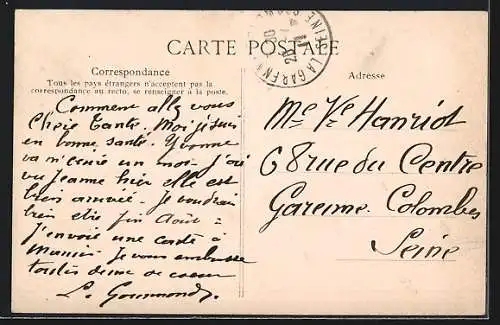 CARTE POSTALE
Correspondance
Tous les pays étrangers n'acceptent pas la
correspondance au recto, se renseigner à la poste.
Comment allez vous
Chère Tante. Moi je suis
en bonne santé. Yvonne
va m'écrire un mot. J'ai
vu Jeanne hier elle est
bien arrivée. Je voudrais
bien être fin Août.
J'envoie une carte à
Je vous embrasse
toutes deux de coeur
LA GARENNE
SEINE
Adresse
Me Ve Hanriot
68 rue du Centre
Garenne-Colombes
Seine